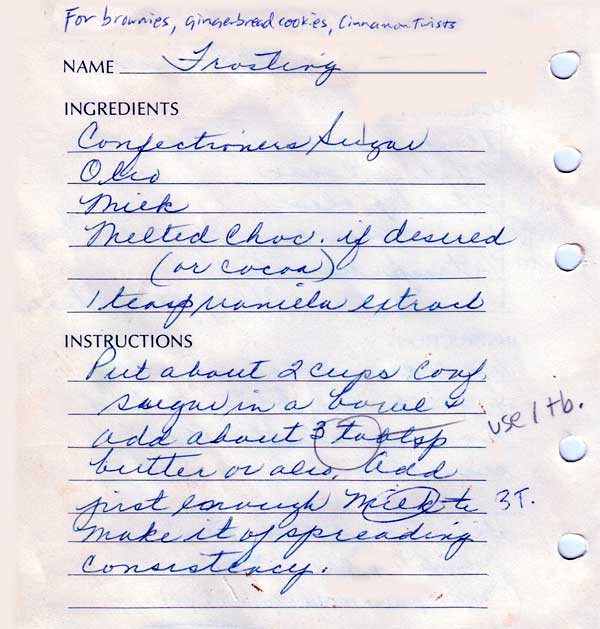 For brownies, gingerbread cookies, Cinnamon Twists
NAME Frosting
INGREDIENTS
Confectioners Sugar
Oleo
Milk
Melted Choc. if desired
(or cocoa)
1 teasp vanilla extract
INSTRUCTIONS
Put about 2 cups Conf.
sugar in a bowl &
add about 3 tablsp use 1 tb.
butter or oleo. Add
just enough milk to 3T.
make it of spreading
consistency.